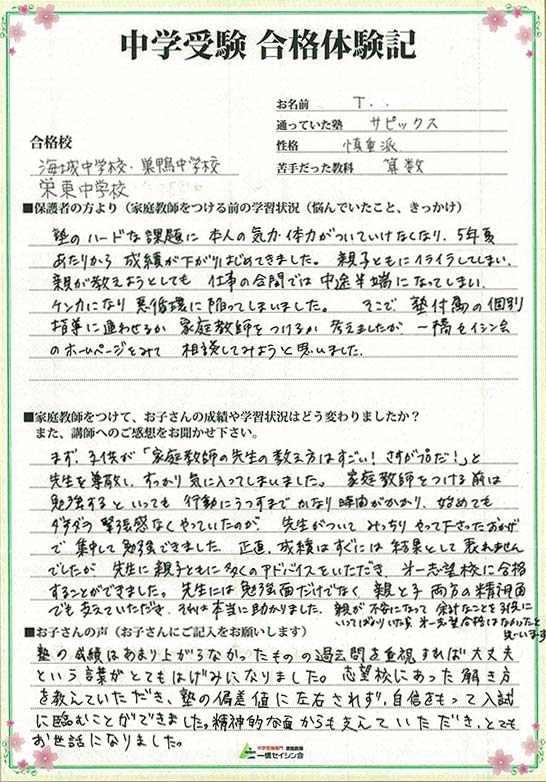 中学受験 合格体験記
お名前 T..
通っていた塾 サピックス
性格 慎重派
苦手だった教科 算数
合格校
海城中学校・巣鴨中学校
栄東中学校
■保護者の方より（家庭教師をつける前の学習状況（悩んでいたこと、きっかけ）
塾のハードな課題に 本人の気力・体力がついていけなくなり、5年夏
あたりから 成績が下がりはじめてきました。 親子ともにイライラしてしまい、
親が教えようとしても 仕事の合間では 中途半端になってしまい、
ケンカになり 悪循環に陥ってしまいました。 そこで 塾付属の個別
指導に通わせるか 家庭教師をつけるか 考えましたが 一橋セイシン会
のホームページをみて 相談してみようと思いました。
■家庭教師をつけて、お子さんの成績や学習状況はどう変わりましたか？
また、講師へのご感想をお聞かせ下さい。
まず、子供が「家庭教師の先生の教え方はすごい！さすがプロだ！」と
先生を尊敬し、すっかり気に入ってしまいました。 家庭教師をつける前は
勉強するといっても 行動にうつすまで かなり時間がかかり、始めても
ダラダラ 緊張感なくやっていたのが、先生がついて みっちり やって下さったおかげ
で 集中して勉強できました。正直、成績はすぐには 結果として 表れません
でしたが 先生に親子ともに多くのアドバイスをいただき、第一志望校に合格
することができました。先生には 勉強面だけでなく 親と子 両方の精神面
でも支えていただき、それは本当に助かりました。親が不安になって 余計なことを子供に
いってばかりいたら 第一志望合格はなかったと
思います
■お子さんの声（お子さんにご記入をお願いします）
塾の成績はあまり上がらなかったものの過去問を重視すれば大丈夫
という言葉がとてもはげみになりました。志望校にあった解き方
を教えていただき、塾の偏差値に左右されず、自信をもって入試
に臨むことができました。精神的な面からも支えていただき、とても
お世話になりました。
中学受験専門 家庭教師
一橋セイシン会